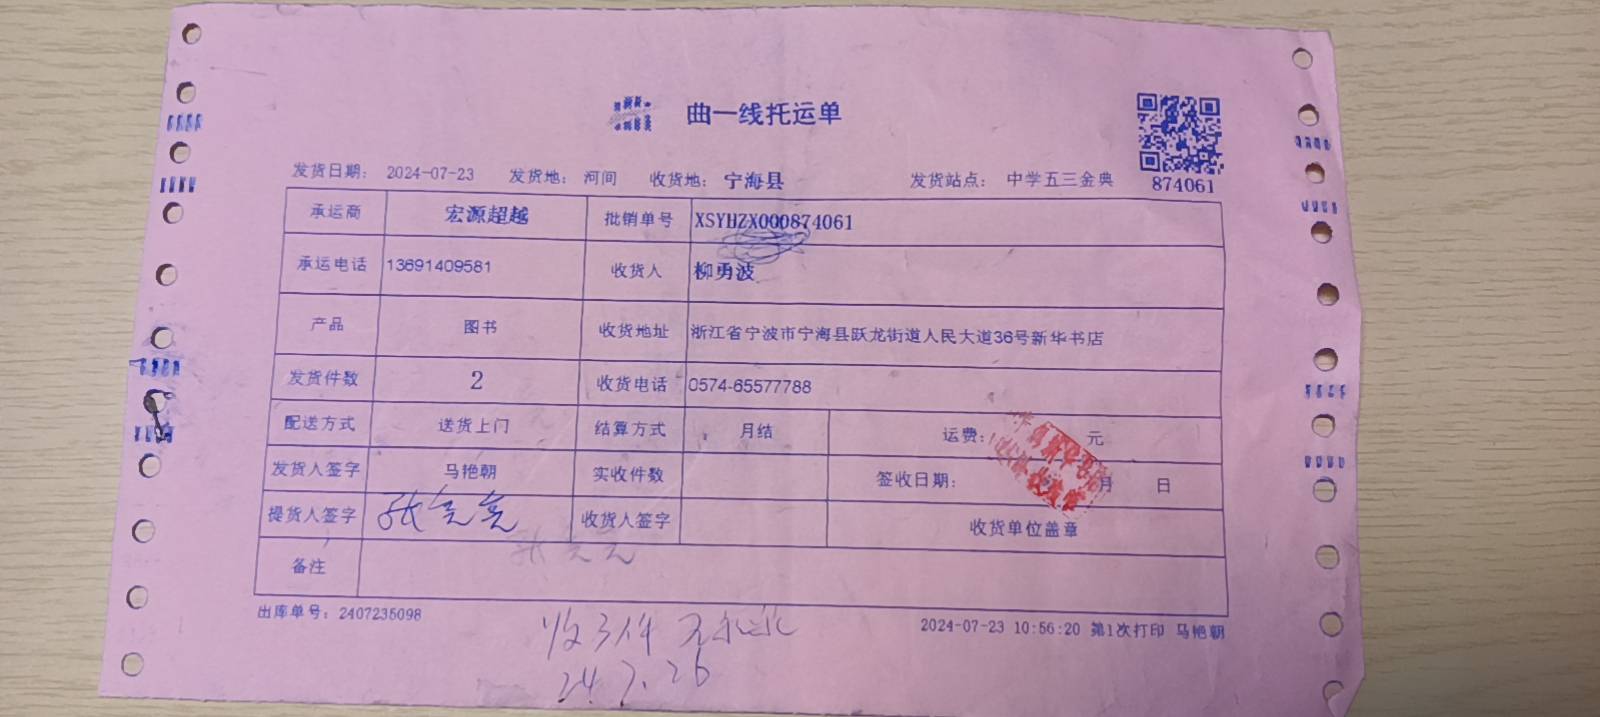 曲一线托运单
874061
发货日期： 2024-07-23 发货地： 河间 收货地： 宁海县 发货站点： 中学五三金典
承运商 宏源超越 批销单号 XSYHZX000874061
承运电话 13691409581 收货人 柳勇波
产品 图书 收货地址 浙江省宁波市宁海县跃龙街道人民大道36号新华书店
发货件数 2 收货电话 0574-65577788
配送方式 送货上门 结算方式 月结 运费： 元
发货人签字 马艳朝 实收件数 签收日期： 月 日
提货人签字 收货人签字 收货单位盖章
备注
出库单号：2407235098 2024-07-23 10:56:20 第1次打印 马艳朝
24.7.26